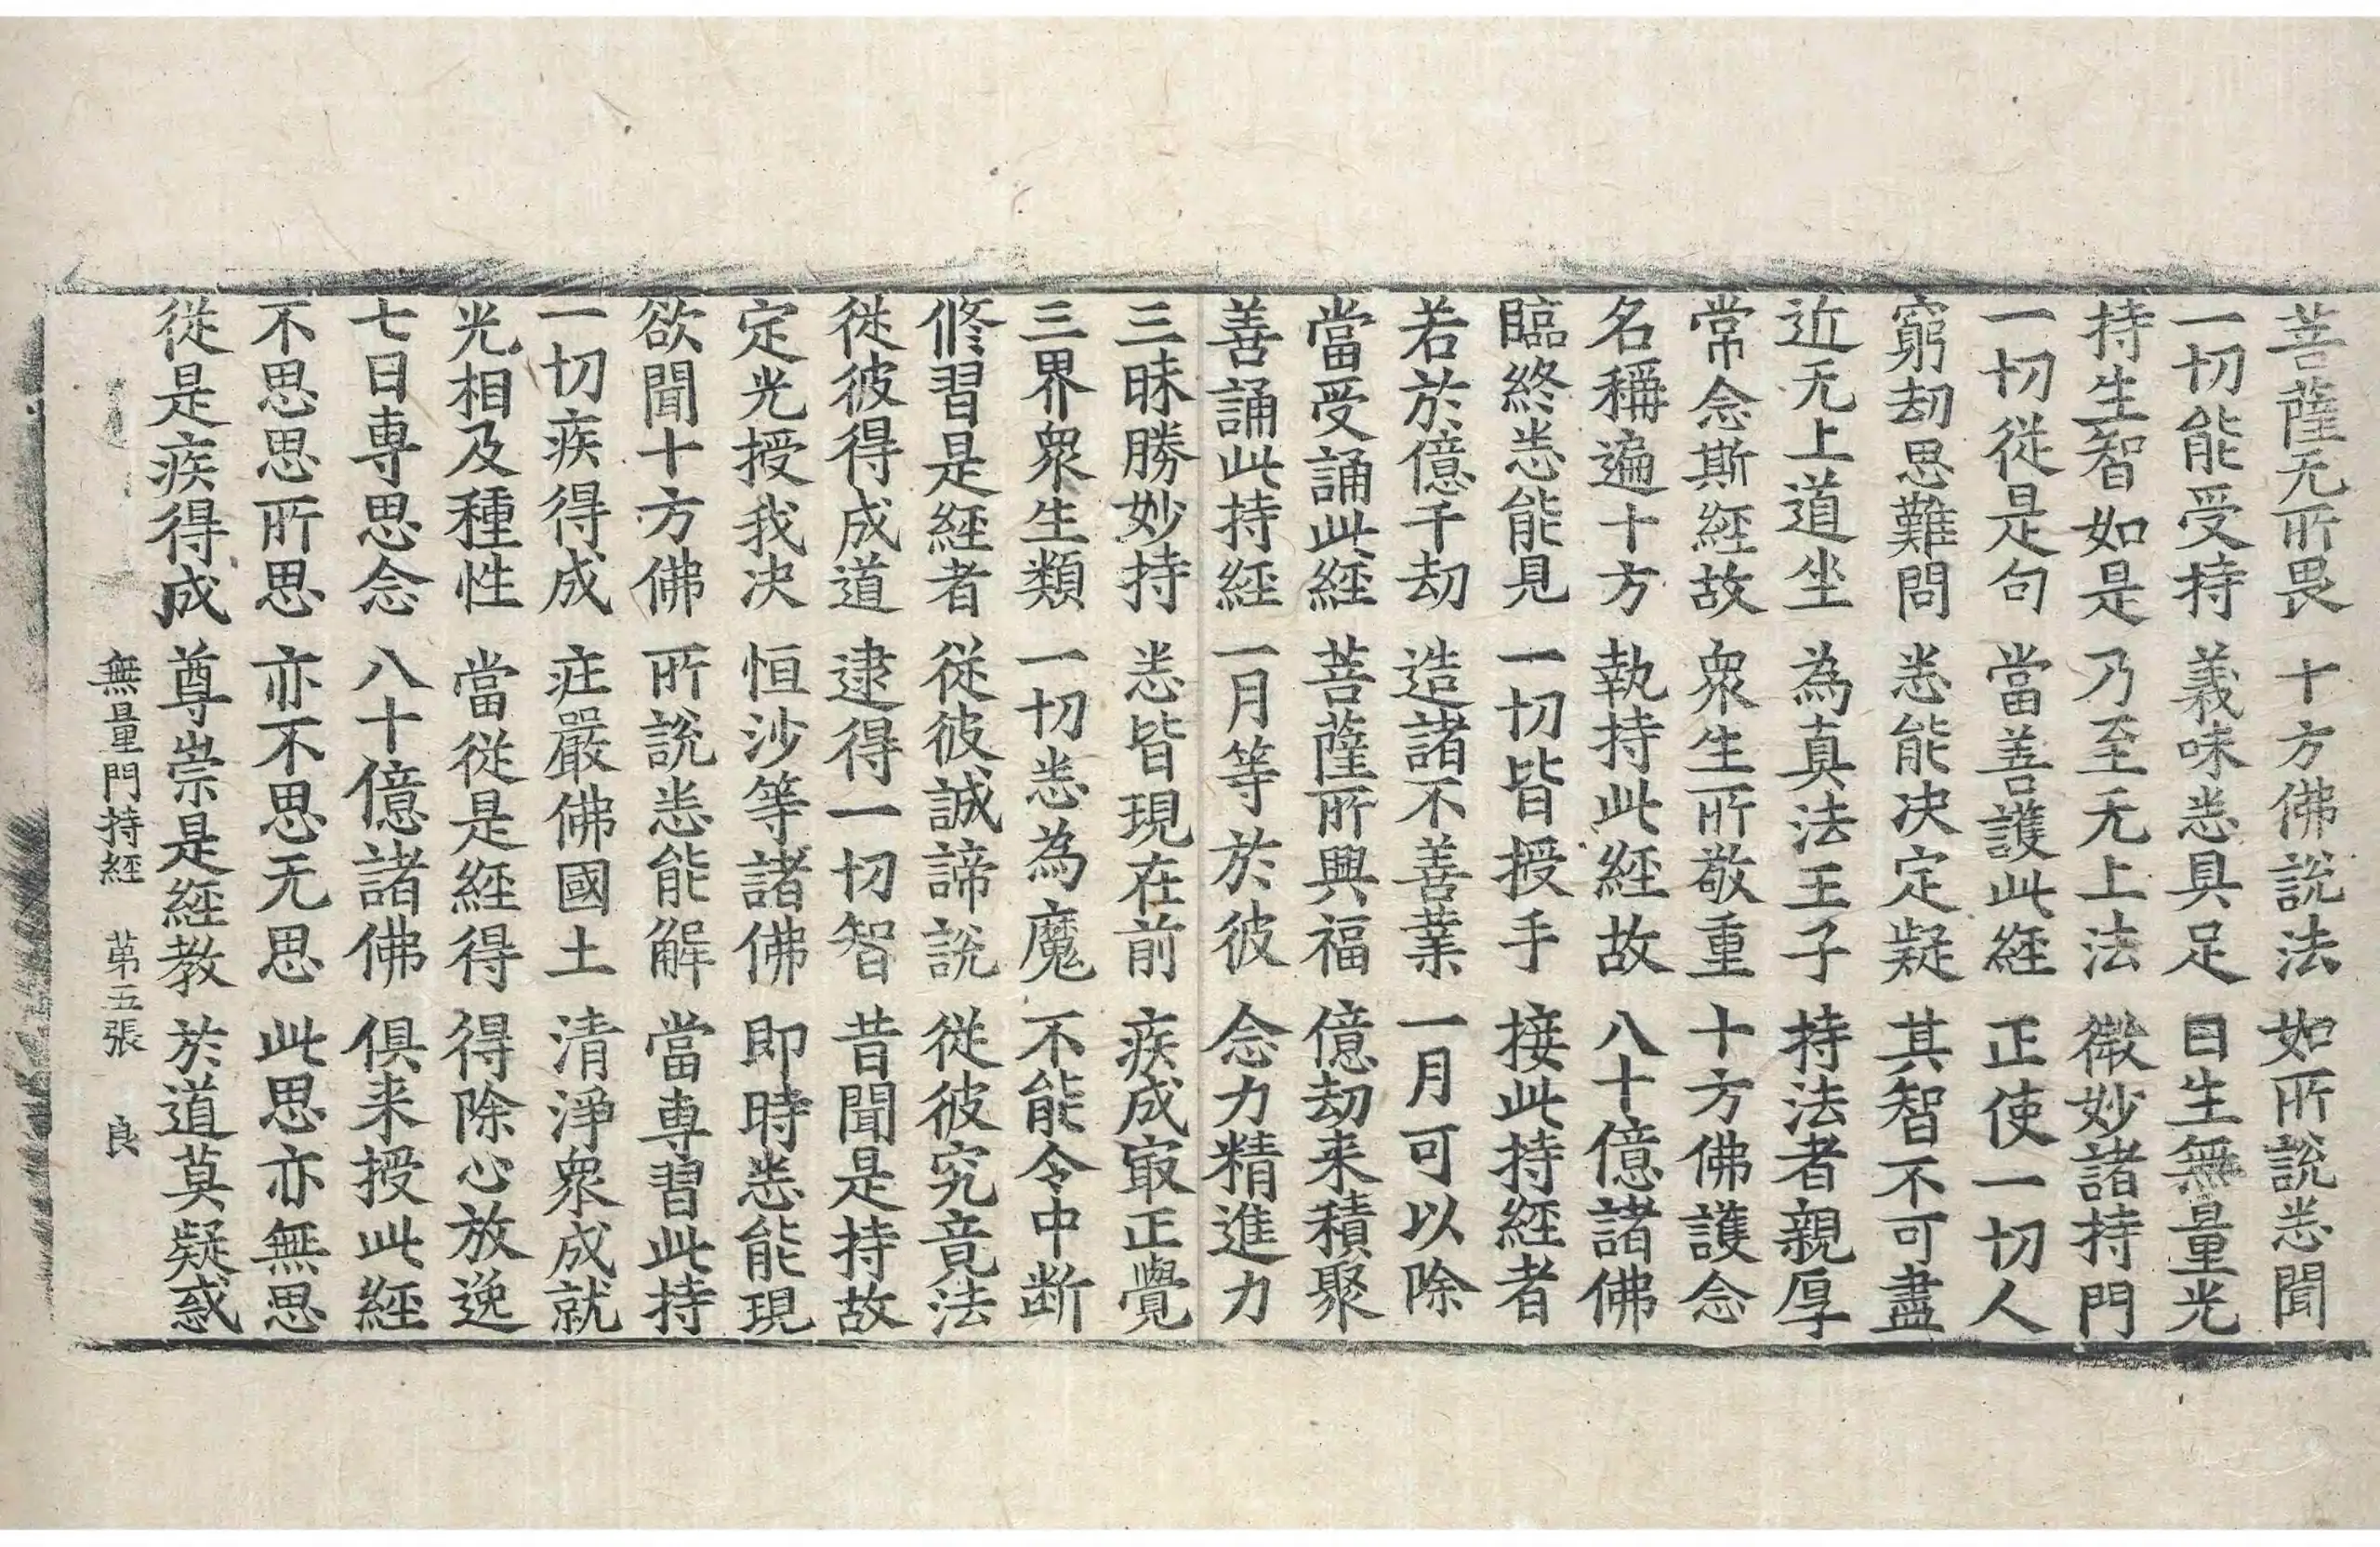 菩薩无所畏 十方佛說法 如所說悉聞
一切能受持 義味悉具足 日生無量光
持生智如是 乃至无上法 微妙諸持門
一切從是句 當善護此經 正使一切人
窮劫思難問 悉能決定疑 其智不可盡
近无上道坐 為真法王子 持法者親厚
常念斯經故 衆生所敬重 十方佛護念
名稱遍十方 執持此經故 八十億諸佛
臨終悉能見 一切皆授手 接此持經者
若於億千劫 造諸不善業 一月可以除
當受誦此經 菩薩所興福 億劫来積聚
善誦此持經 一月等於彼 念力精進力
三昧勝妙持 悉皆現在前 疾成㝡正覺
三界衆生類 一切悉為魔 不能令中断
修習是經者 從彼誠諦說 從彼究竟法
從彼得成道 逮得一切智 昔聞是持故
定光授我决 恒沙等諸佛 即時悉能現
欲聞十方佛 所說悉能解 當專習此持
一切疾得成 庄嚴佛國土 清淨衆成就
光相及種性 當從是經得 得除心放逸
七日專思念 八十億諸佛 俱来授此經
不思思所思 亦不思无思 此思亦無思
從是疾得成 尊崇是經教 於道莫疑惑
無量門持經 苐五張 良